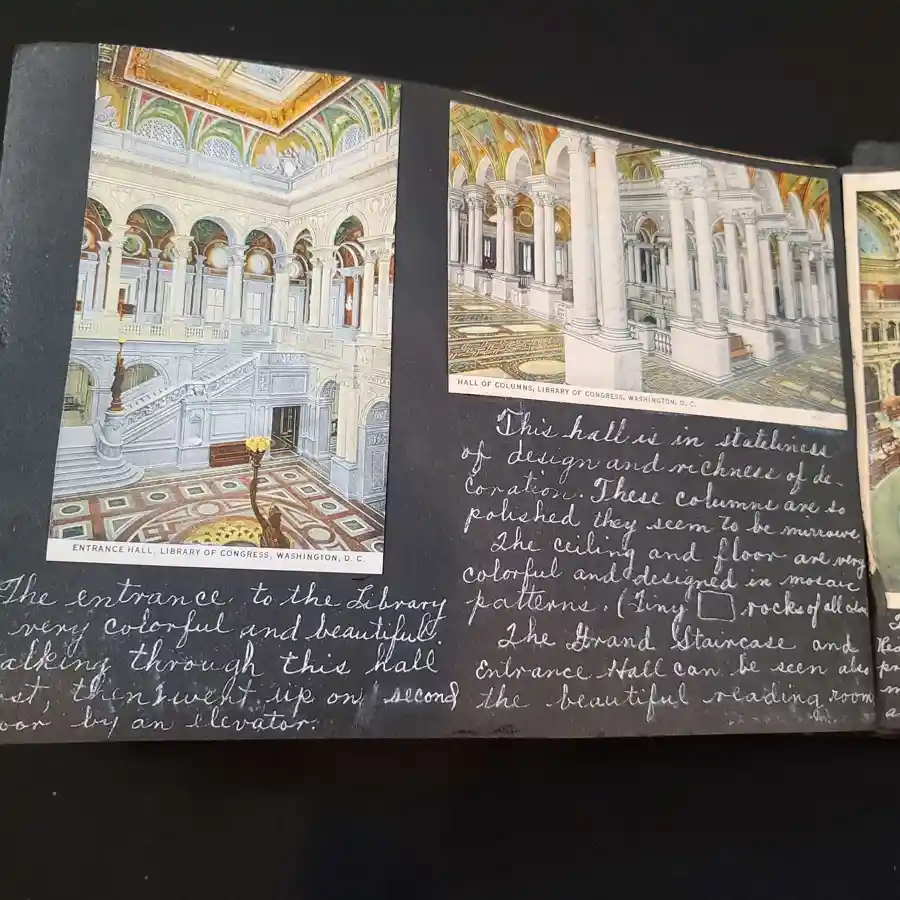 ENTRANCE HALL, LIBRARY OF CONGRESS, WASHINGTON, D. C.
The entrance to the Library
very colorful and beautiful.
alking through this hall
st, then went up on second
oor by an elevator.
HALL OF COLUMNS, LIBRARY OF CONGRESS, WASHINGTON, D. C.
This hall is in stateliness
of design and richness of de-
coration. These columns are so
polished they seem to be mirrows
The ceiling and floor are very
colorful and designed in mosaic
patterns. (Tiny rocks of all
The Grand Staircase and
Entrance Hall can be seen also
the beautiful reading room